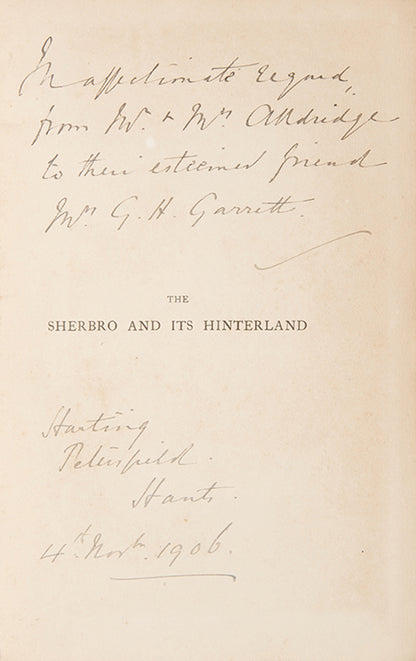 In affectionate regard,
from Mr. & Mrs Alldridge
to their esteemed friend
Mrs G. H. Garrett.
THE
SHERBRO AND ITS HINTERLAND
Harting
Petersfield.
Hants.
4th. Novbr. 1906.